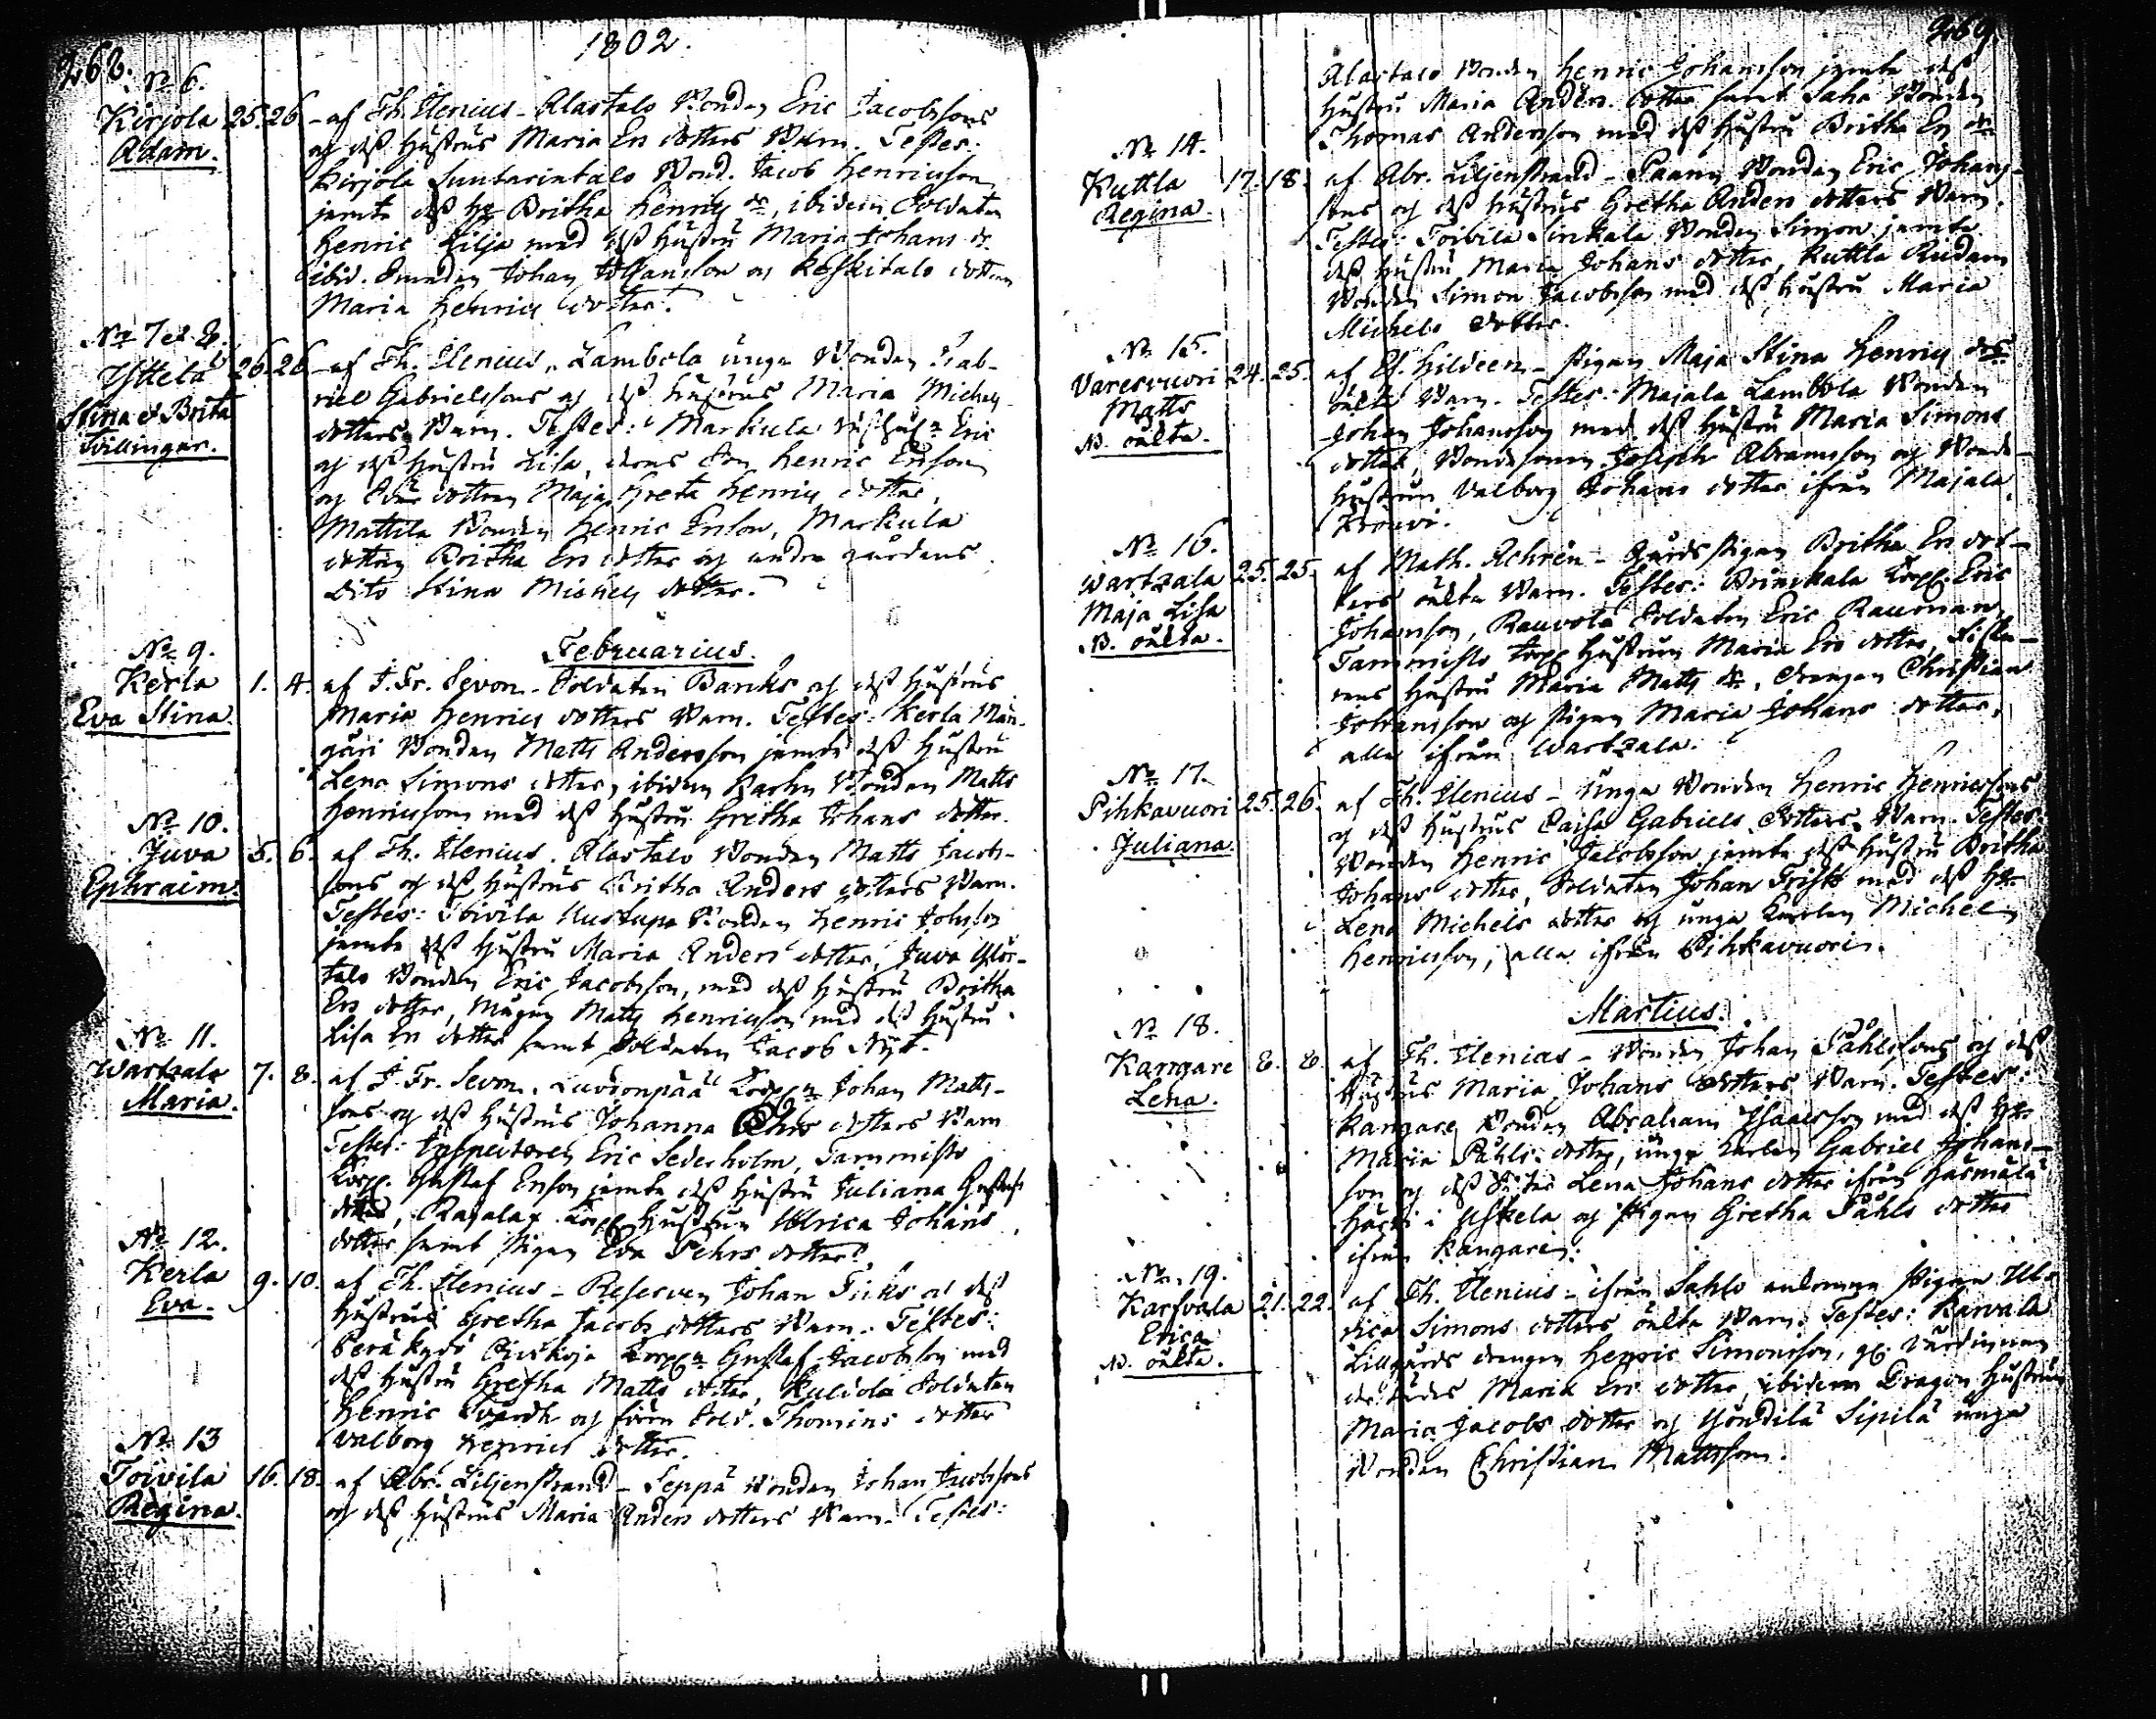 268.
1802.
No 6.
Kirjola 25. 26. af Th. Elenius - Alastalo Bonden Eric Jacobssons
Adam. och dess hustrus Maria Ers dotters Barn. Testes:
Kirjola Suntarintalo Bond. Jacob Henricsson
jemte dess H. Britha Henrics dr, ibidem Soldaten
Henric Lilja med dess hustru Maria Johans dr
ibid. Johan Johansson och Koskitalo dottren
Maria Henrics dotter.
No 7 et 8.
Yttelä 26. 26. af Th. Elenius, Lambola unga Bonden Gab-
Stina & Brita riel Gabrielssons och dess hustrus Maria Michels
Tvillingar. dotters Barn. Testes: Markula Eric
och dess hustru Lisa, deras Son Henric Ersson
och dottren Maja Greta Henrics dotter,
Mattila Bonden Henric Ersson, Markula
dottren Britha Ers dotter och andra gårdens
dito Stina Michels dotter.
Februarius.
No 9.
Kerla 1. 4. af J. Fr. Sevon - Soldaten Banks och dess hustrus
Eva Stina. Maria Henrics dotters Barn. Testes: Kerla Män-
gäri Bonden Matts Andersson jemte dess hustru
Lena Simons dotter, ibidem Bonden Matts
Henricsson med dess hustru Gretha Johans dotter.
No 10.
Juva 5. 6. af Th. Elenius. Alastalo Bonden Matts Jacobs-
Ephraim. sons och dess hustrus Britha Anders dotters Barn.
Testes: Toivila Uustupa Bonden Henric Johsson
jemte dess hustru Maria Anders dotter, Juva Ylös-
talo Bonden Eric Jacobsson, med dess hustru Britha
Ers dotter, Mågen Matts Henricsson med dess hustru
Lisa Ers dotter samt Soldaten Jacob Nyt.
No 11.
Wartzala 7. 8. af J. Fr. Sevon. Luvionpää Torp. Johan Matts-
Maria. sons och dess hustrus Johanna Ehrs dotters Barn
Testes: Inspectoren Eric Sederholm, Tammisto
Torp. Gustaf Ersson jemte dess hustru Juliana Gustafs
dotter, Torp. hustrun Ulrica Johans
dotter samt pigan Eva Pehrs dotter.
No 12.
Kerla 9. 10. af Th. Elenius - Reserven Johan och dess
Eva. hustrus Gretha Jacobs dotters Barn. Testes:
Torp. Gustaf Jacobsson med
dess hustru Gretha Matts dotter, Kuldola Soldaten
Henric Svärdh och förra Sold. Thomins dotter
Valborg Henrics dotter.
No 13
Toivila 16. 18. af Abr. Liljenstrand - Seppä Bonden Johan Jacobssons
Regina. och dess hustrus Maria Anders dotters Barn. Testes:
269.
Alastalo Bonden Henric Johansson jemte dess
hustru Maria Anders. dotter samt Saha Bonden
Thomas Andersson med dess hustru Britha Ers dr.
No 14.
Kuttla 17. 18. af Abr. Liljenstrand - Paanu Bonden Eric Johans-
Regina. sons och dess hustrus Gretha Anders dotters Barn.
Testes: Toivila Sinkala Bonden Simon jemte
dess hustru Maria Johans dotter, Kuttla Rudam
Bonden Simon Jacobsson med dess hustru Maria
Michels dotter.
No 15.
Varesvuori 24. 25. af Hildeen - pigan Maja Stina Henrics drs
Matts oäkta Barn. Testes: Majala Lambola Bonden
N. oäkta. Johan Johansson med dess hustru Maria Simons
dotter, Bondsonen Joseph Abramsson och Bonde-
hustrun Valborg Johans dotter ifrån Majala
Krouvi.
No 16.
Wartzala 25. 25. af Math. Achrén - Gårds pigan Britha Ers dot-
Maja Lisa ters oäkta Barn. Testes: Brinckala Torp. Eric
N. oäkta. Johansson, Rauvola Soldaten Eric
Tammisto Torp. hustrun Maria Ers dotter,
rens hustru Maria Matts dr, drengen Christian
Johansson och pigan Maria Johans dotter,
alla ifrån Wartzala.
No 17.
Pihkavuori 25. 26. af Th. Elenius - Unga Bonden Henric Henricssons
Juliana. och dess hustrus Caisa Gabriels dotters Barn. Testes:
Bonden Henric Jacobsson jemte dess hustru Britha
Johans dotter, Soldaten Johan Frisk med dess H.
Lena Michels dotter och unga Karlen Michel
Henricsson, alla ifrån Pihkavuori.
Martius.
No 18.
Kangare 8. 8. af Th. Elenius - Bonden Johan Påhlssons och dess
Lena. hustrus Maria Johans dotters Barn. Testes:
Kangare Bonden Abraham Isaacsson med dess H.
Maria Påhls dotter, unga Karlen Gabriel Johans-
son och dess Syster Lena Johans dotter ifrån
i Uskela och pigan Gretha Påhls dotter
ifrån Kangare.
No 19.
Karvala 21. 22. af Th. Elenius - ifrån Sahlo ankomna pigan Ul-
Erica rica Simons dotters oäkta Barn. Testes: Karvala
N. oäkta. Lillgårds drengen Henric Simonsson, värdinnan
Maria Ers dotter, ibidem Dragon hustrun
Maria Jacobs dotter och Sipilä unga
Bonden Christian Mattsson.